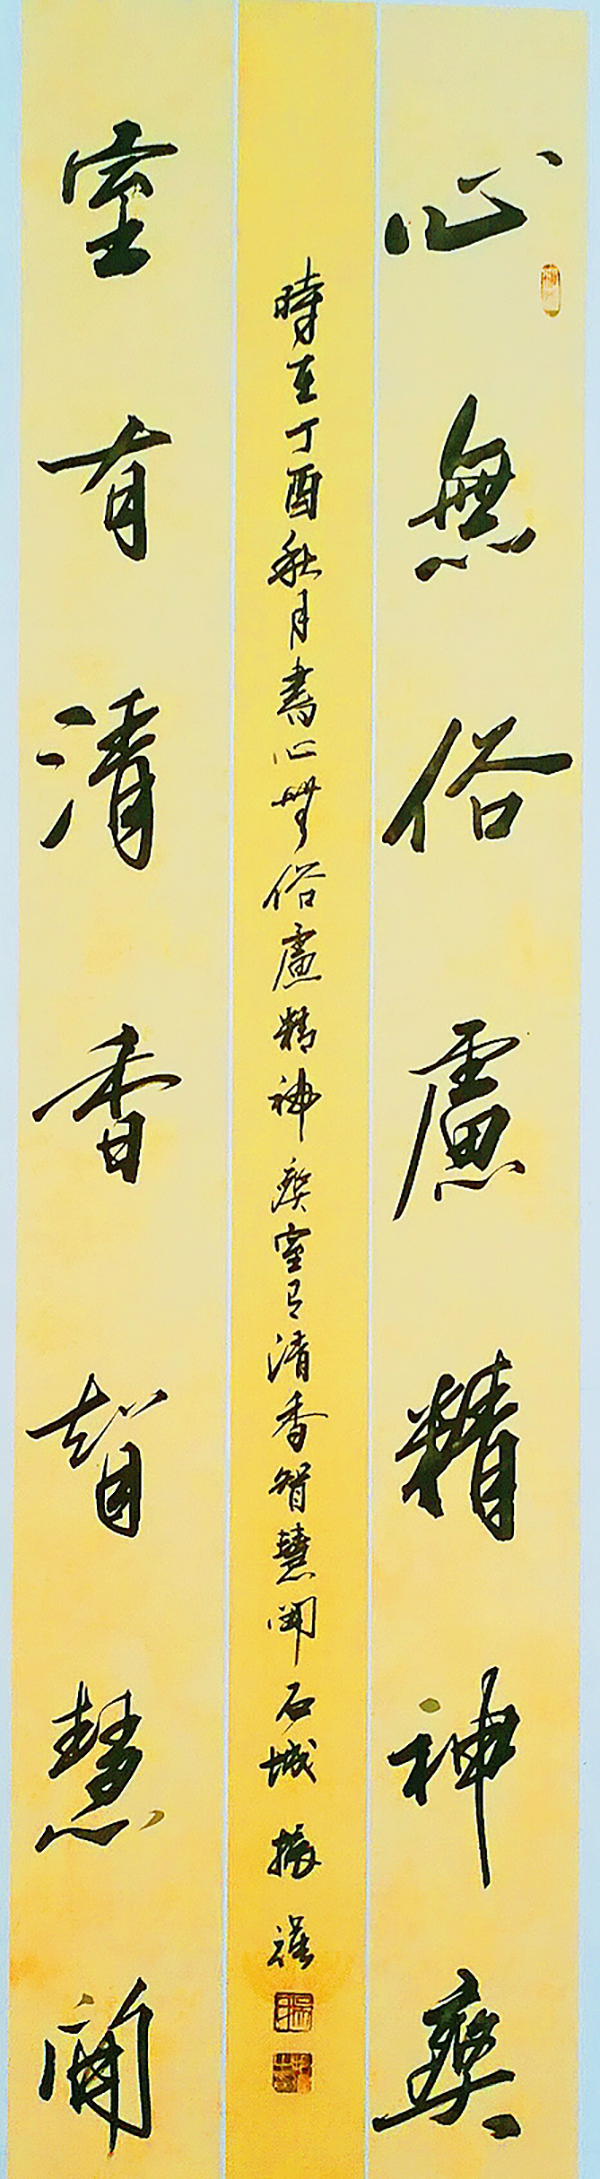 心無俗慮精神爽
時至丁酉秋月書心無俗慮精神爽室有清香智慧開石城振
室有清香智慧開